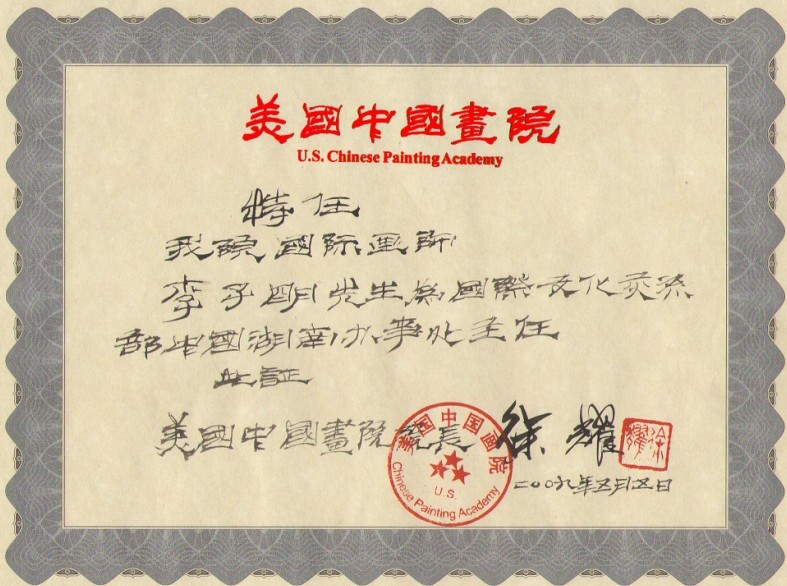 美國中國畫院
U.S. Chinese Painting Academy
特任
我院國际画师
李子明先生為國際文化交流
部中國湖南办事处主任
此証
美國中國畫院院長 徐耀
徐耀
美国中国画院
U.S.
Chinese Painting Academy
二00九年五月五日